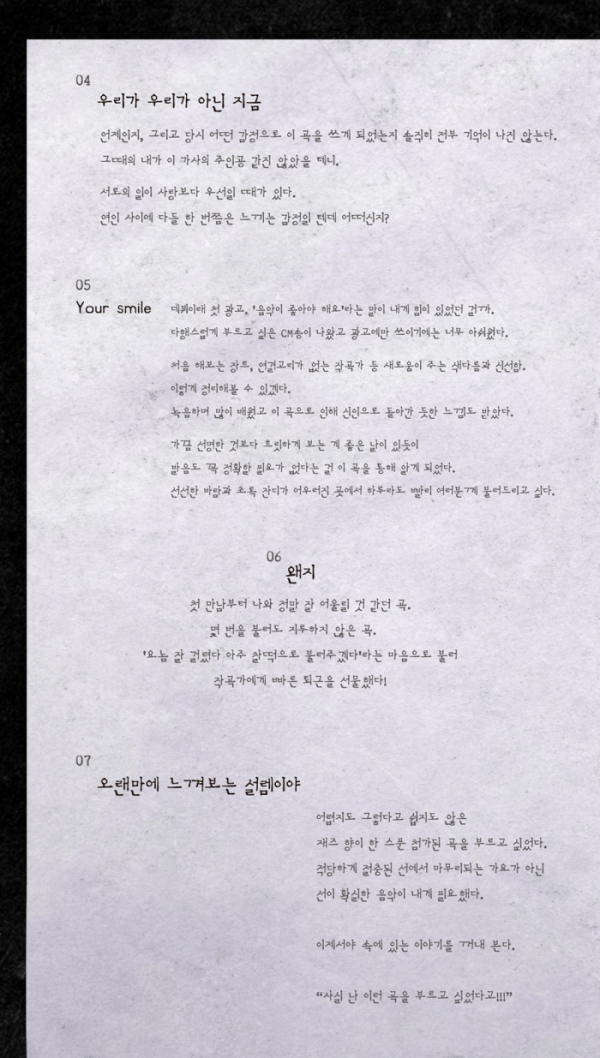 04
우리가 우리가 아닌 지금
언제인지, 그리고 당시 어떤 감정으로 이 곡을 쓰게 되었는지 솔직히 전부 기억이 나진 않는다.
그때의 내가 이 가사의 주인공 같진 않았을 테니.
서로의 일이 사랑보다 우선일 때가 있다.
연인 사이에 다들 한 번쯤은 느끼는 감정일 텐데 어떠신지?
05
Your smile
데뷔이래 첫 광고. '음악이 좋아야 해요'라는 말이 내게 힘이 있었던 걸까.
다행스럽게 부르고 싶은 CM송이 나왔고 광고에만 쓰이기에는 너무 아쉬웠다.
처음 해보는 장르, 연결고리가 없는 작곡가 등 새로움이 주는 색다름과 신선함.
이렇게 정리해볼 수 있겠다.
녹음하며 많이 배웠고 이 곡으로 인해 신인으로 돌아간 듯한 느낌도 받았다.
가끔 선명한 것보다 흐릿하게 보는 게 좋은 날이 있듯이
발음도 꼭 정확할 필요가 없다는 걸 이 곡을 통해 알게 되었다.
선선한 바람과 초록 잔디가 어우러진 곳에서 하루라도 빨리 여러분께 불러드리고 싶다.
06
왠지
첫 만남부터 나와 정말 잘 어울릴 것 같던 곡.
몇 번을 불러도 지루하지 않은 곡.
'요놈 잘 걸렸다 아주 찰떡으로 불러주겠다'라는 마음으로 불러
작곡가에게 빠른 퇴근을 선물했다!
07
오랜만에 느껴보는 설렘이야
어렵지도 그렇다고 쉽지도 않은
재즈 향이 한 스푼 첨가된 곡을 부르고 싶었다.
적당하게 절충된 선에서 마무리되는 가요가 아닌
선이 확실한 음악이 내게 필요했다.
이제서야 속에 있는 이야기를 꺼내 본다.
"사실 난 이런 곡을 부르고 싶었다고!!!"